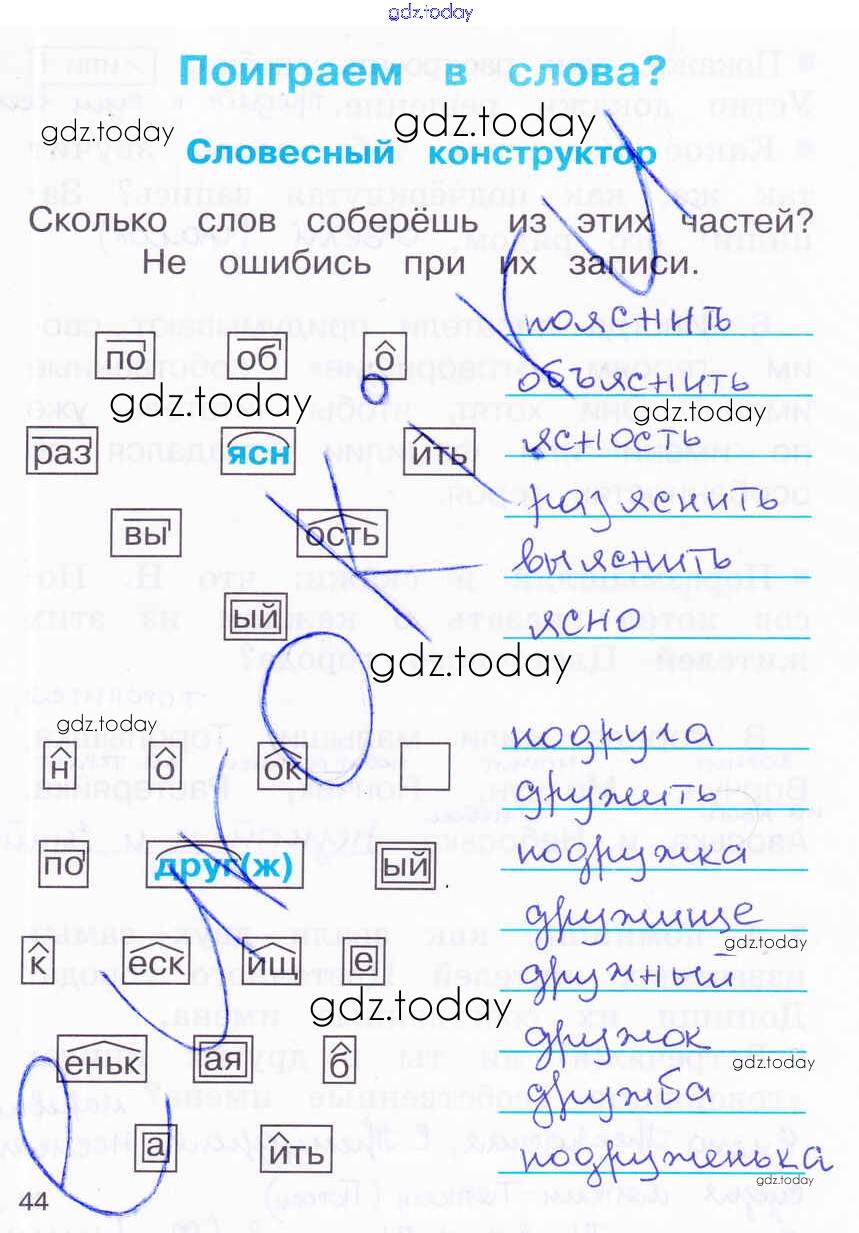 gdz.today
Поиграем в слова?
gdz.today
gdz.today
Словесный конструктор
Сколько слов соберёшь из этих частей?
Не ошибись при их записи.
пояснить
по об о
объяснить
gdz.today
gdz.today
ясность
раз ясн ить
разяснить
вы ость
выяснить
ый
ясно
gdz.today
gdz.today
подруга
н о ок
дружить
по друг(ж) ый
подружка
дружище
gdz.today
к еск ищ е
дружный
gdz.today
дружок
gdz.today
еньк ая б
дружба
а ить
подруженька
gdz.today
44